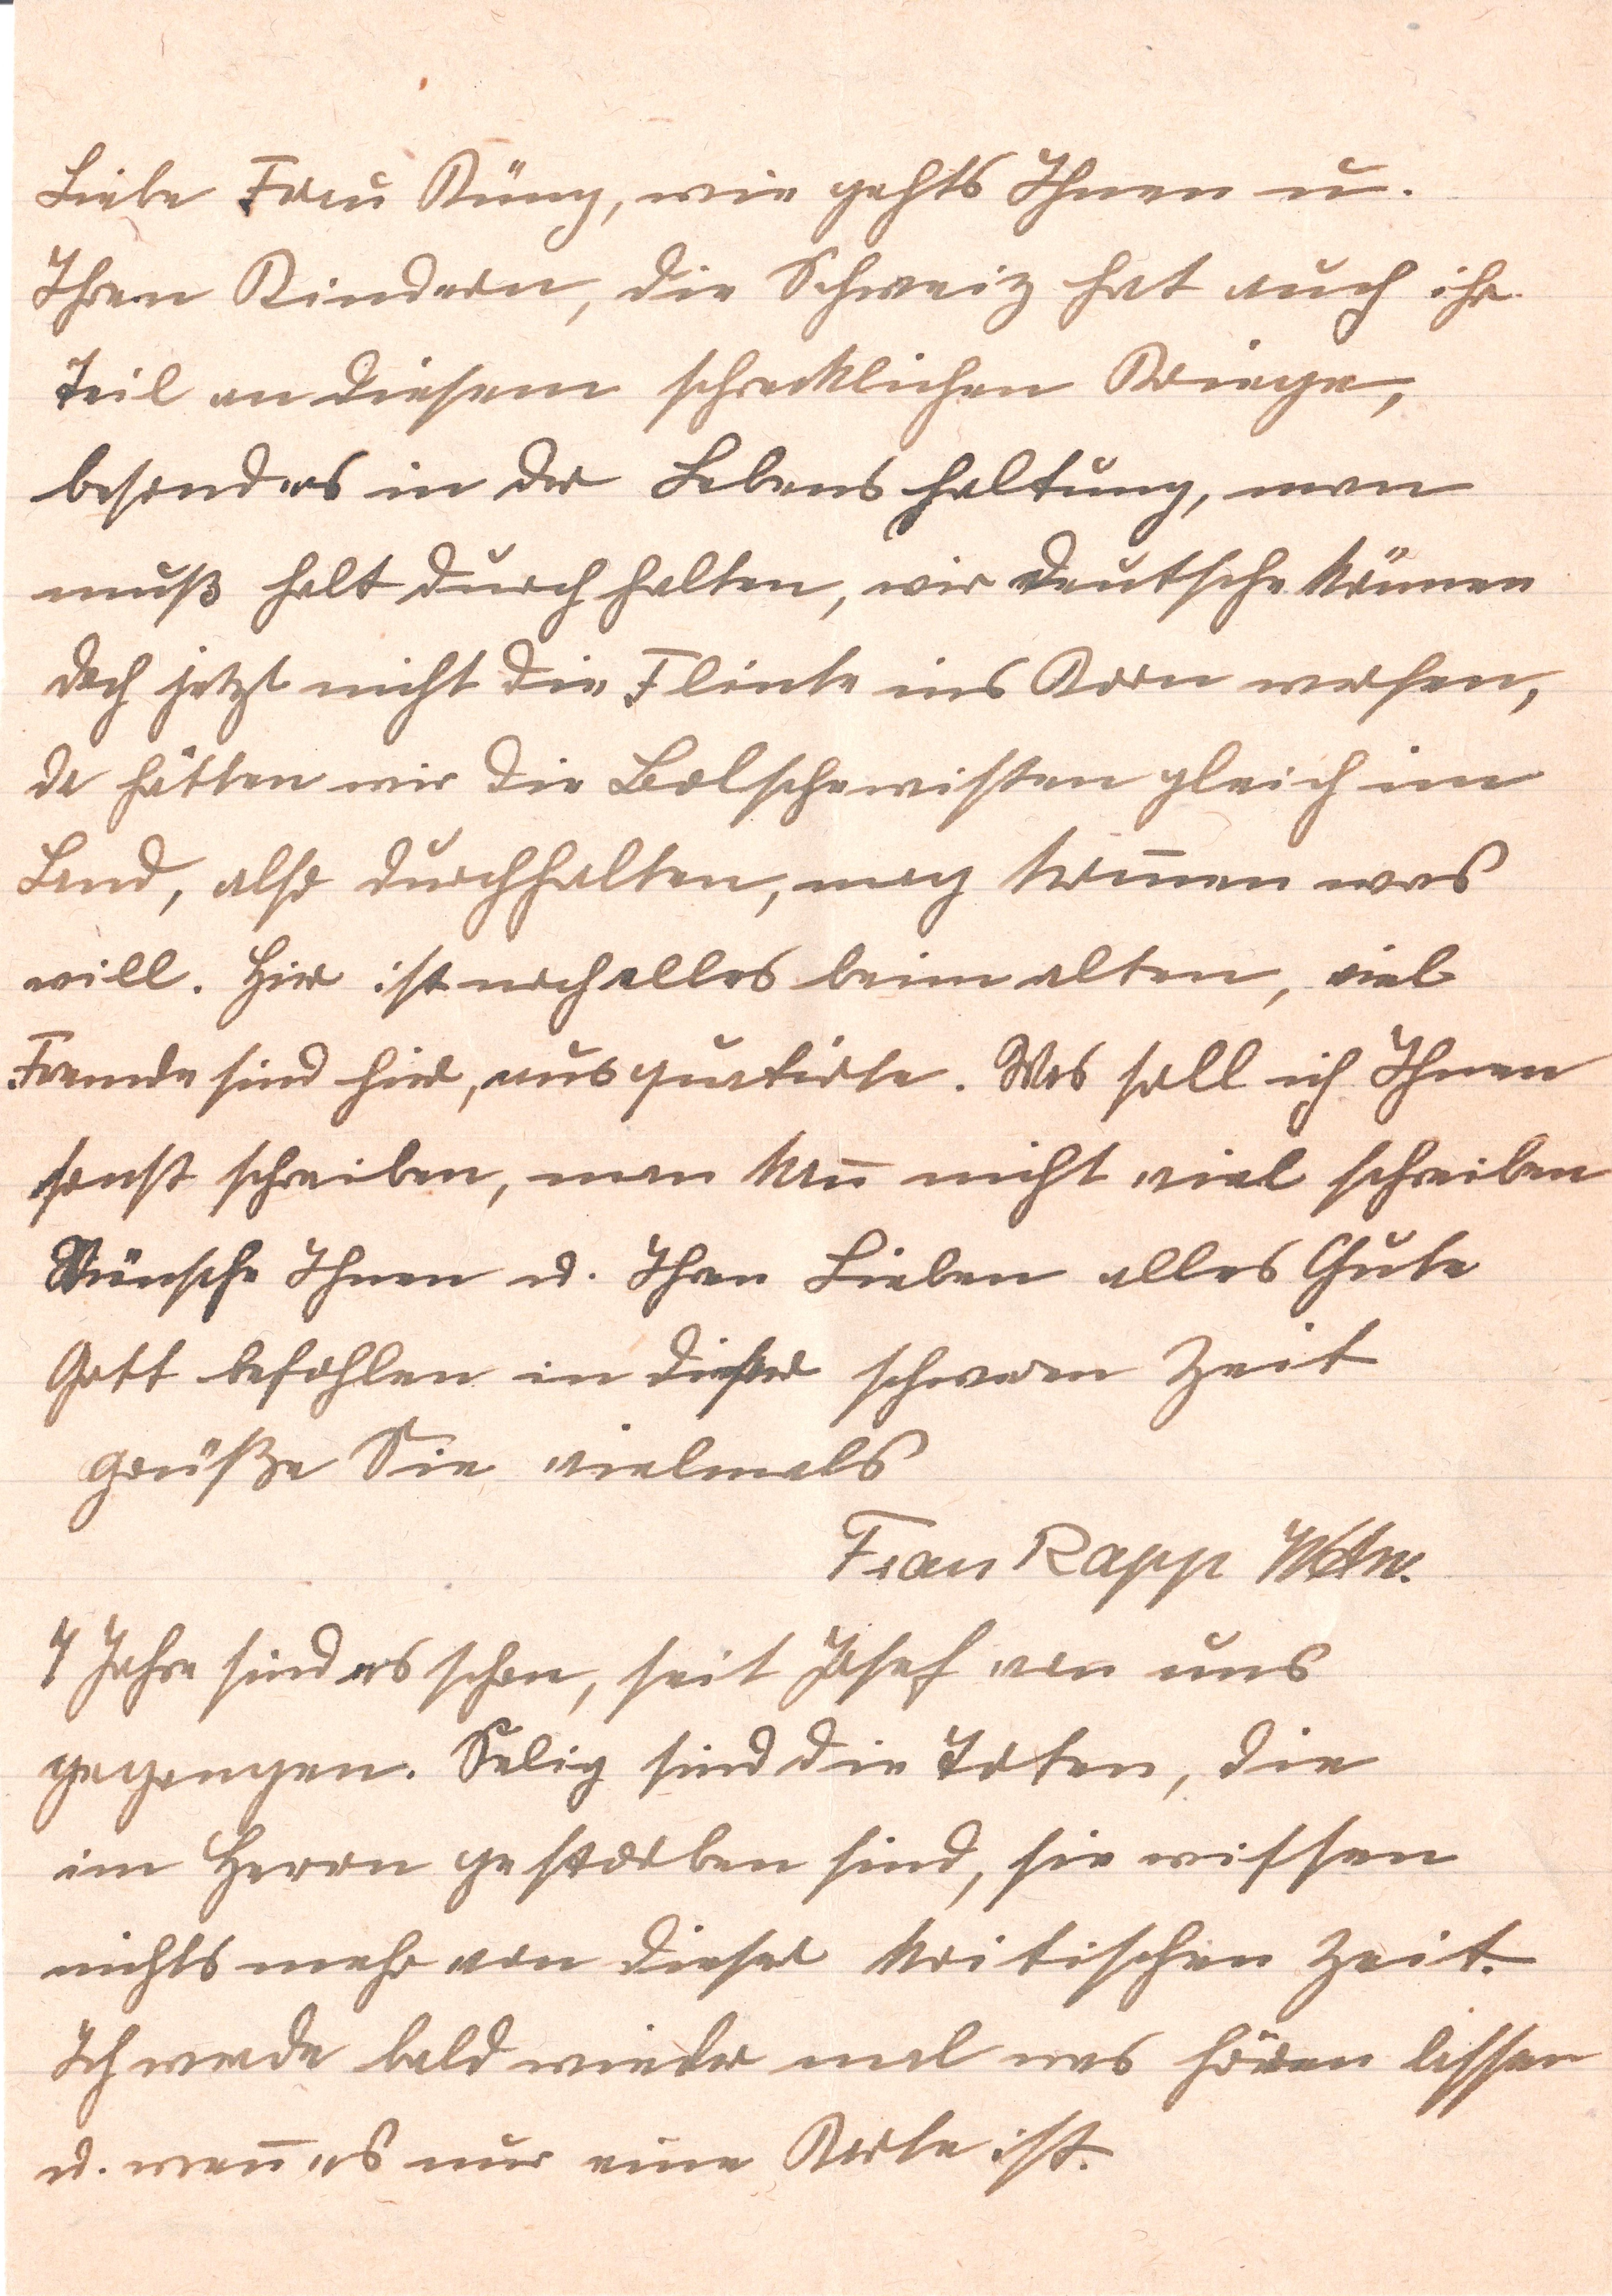 Liebe Frau Küng, wie gehts Ihnen u.
Ihren Kindern, die Schweiz hat auch ihr
Teil an diesem schrecklichen Kriege,
besonders in der Lebenshaltung, man
muß halt durchhalten, wir Deutsche können
doch jetzt nicht die Flinte ins Korn werfen,
da hätten wir die Bolschewisten gleich im
Land, also durchhalten, mag kom̄en was
will. Hier ist noch alles beim alten, viel
Fremde sind hier, ausquatirte. Was soll ich Ihnen
sonst schreiben, man kan̄ nicht viel schreiben
Wünsche Ihnen u. Ihren Lieben alles Gute
Gott befohlen in dieser schweren Zeit
grüße Sie vielmals
Frau Rapp Wtw.
4 Jahre sind es schon, seit Josef von uns
gegangen. Selig sind die Toten, die
im Herrn gestorben sind, sie wissen
nichts mehr von dieser kritischen Zeit.
Ich werde bald wieder mal was hören lassen
u. wen̄ es nur eine Karte ist.